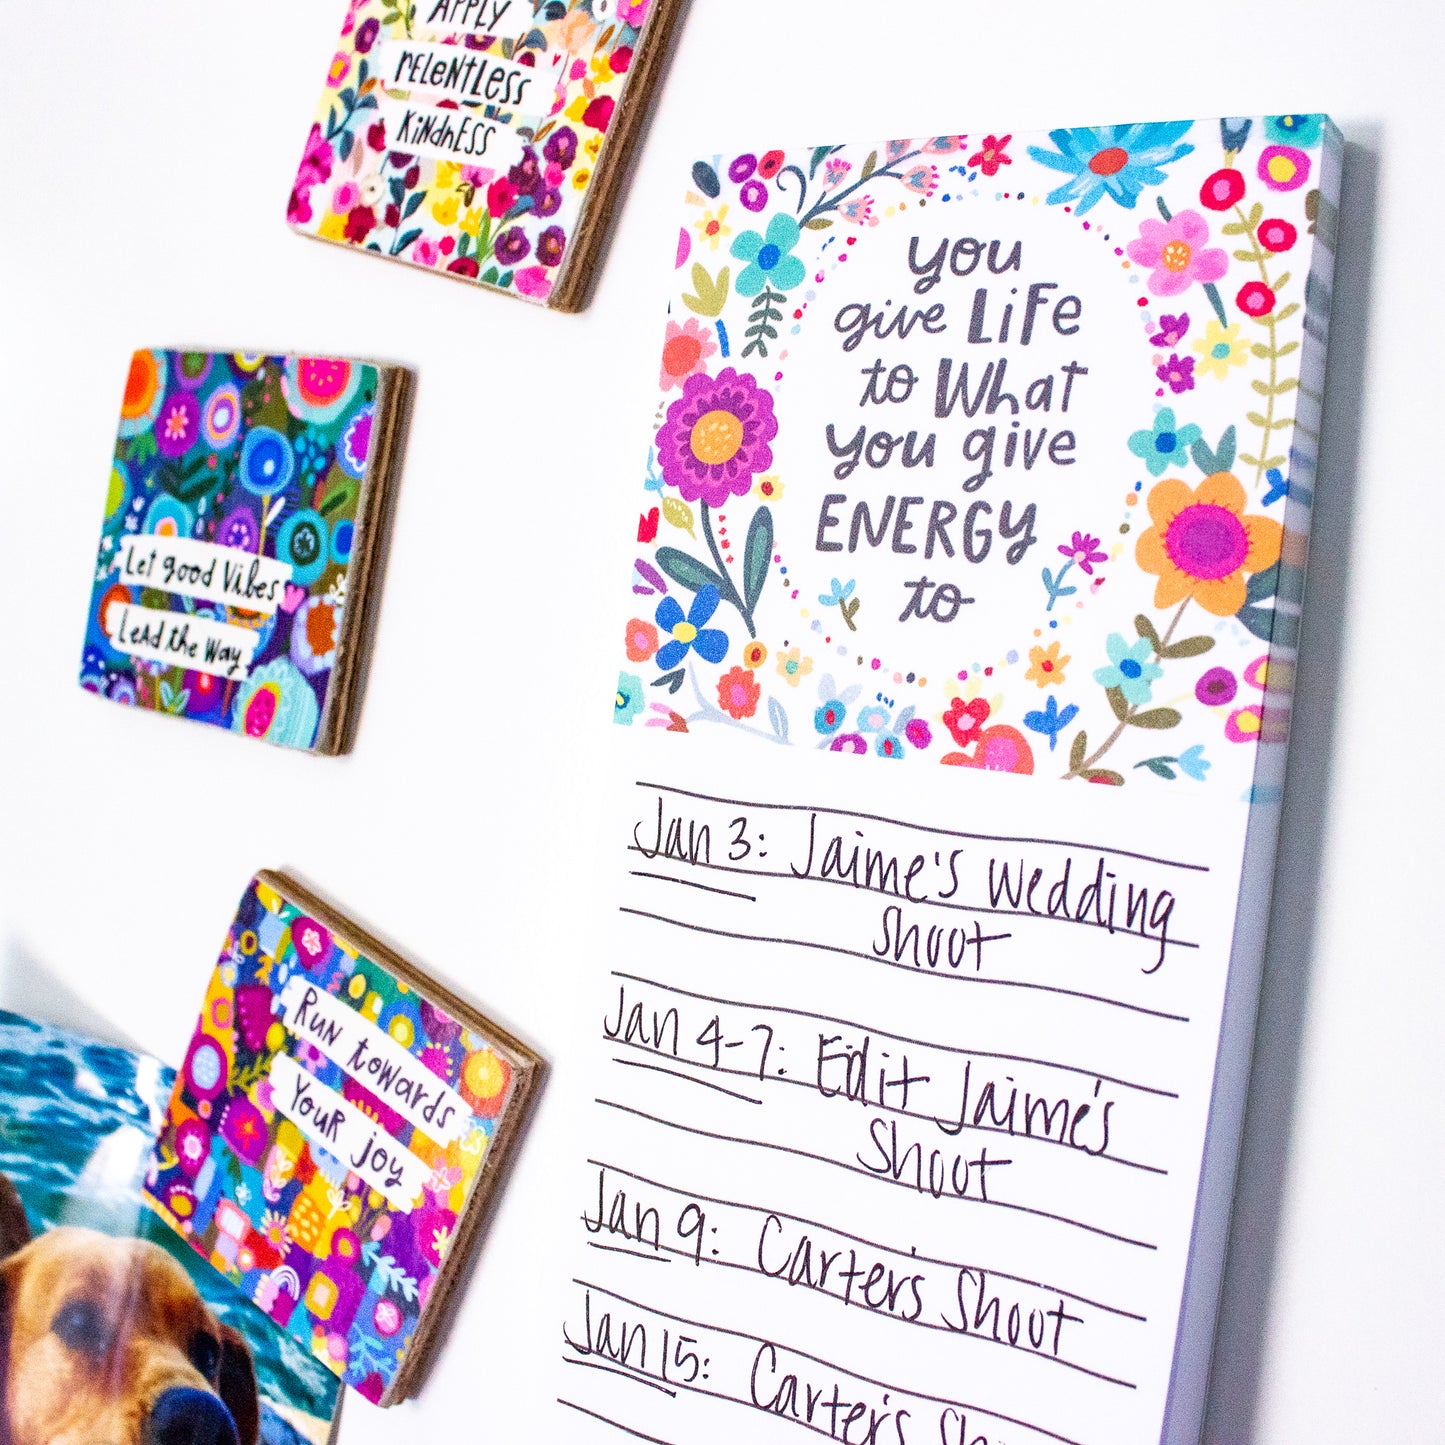 APPLY
RELENTLESS
KINDNESS
Let good Vibes
Lead the Way
Run towards
Your joy
you
give Life
to What
you give
ENERGY
to
Jan 3: Jaime's Wedding
Shoot
Jan 4-7: Edit Jaime's
Shoot
Jan 9: Carter's Shoot
Jan 15: Carter's